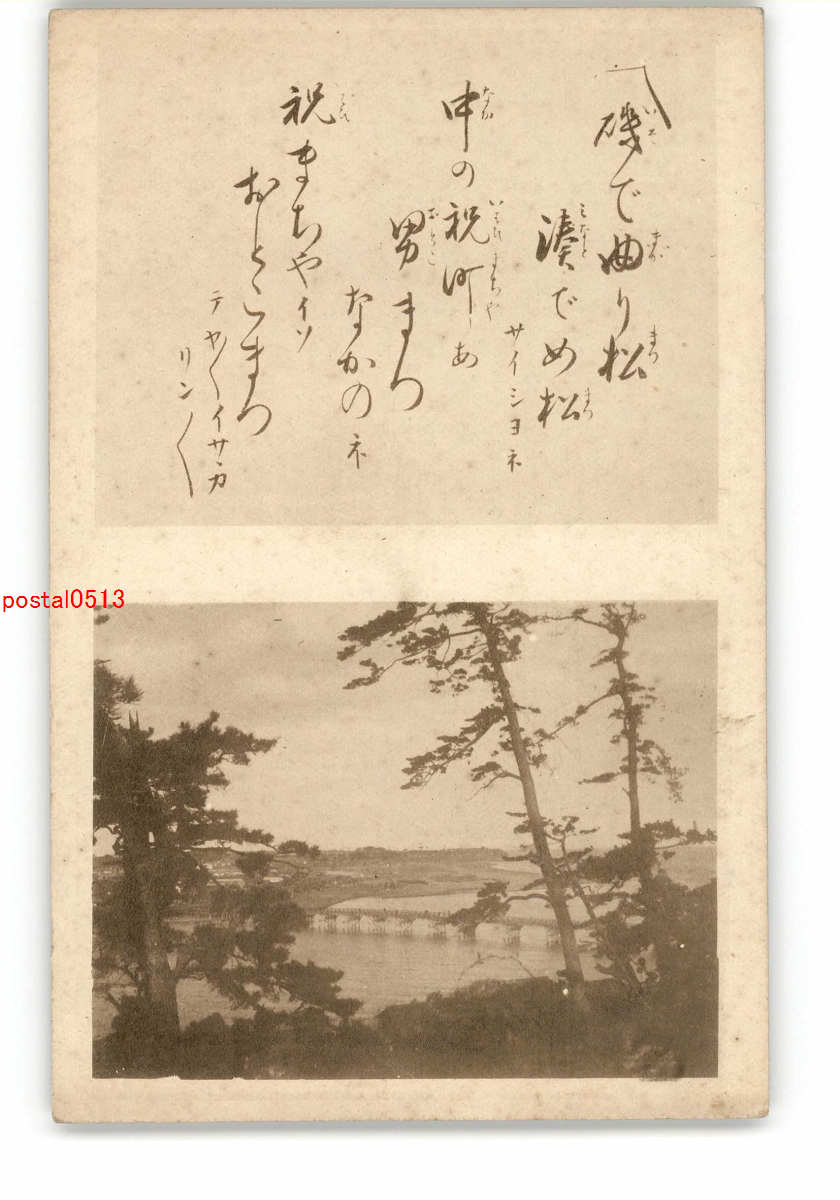 〽磯で曲り松
湊でめ松
サイシヨネ
中の祝町あ
男まつ
なかのネ
祝まちやイソ
おとこまつ
テヤ〳〵イサカ
リン〳〵
postal0513